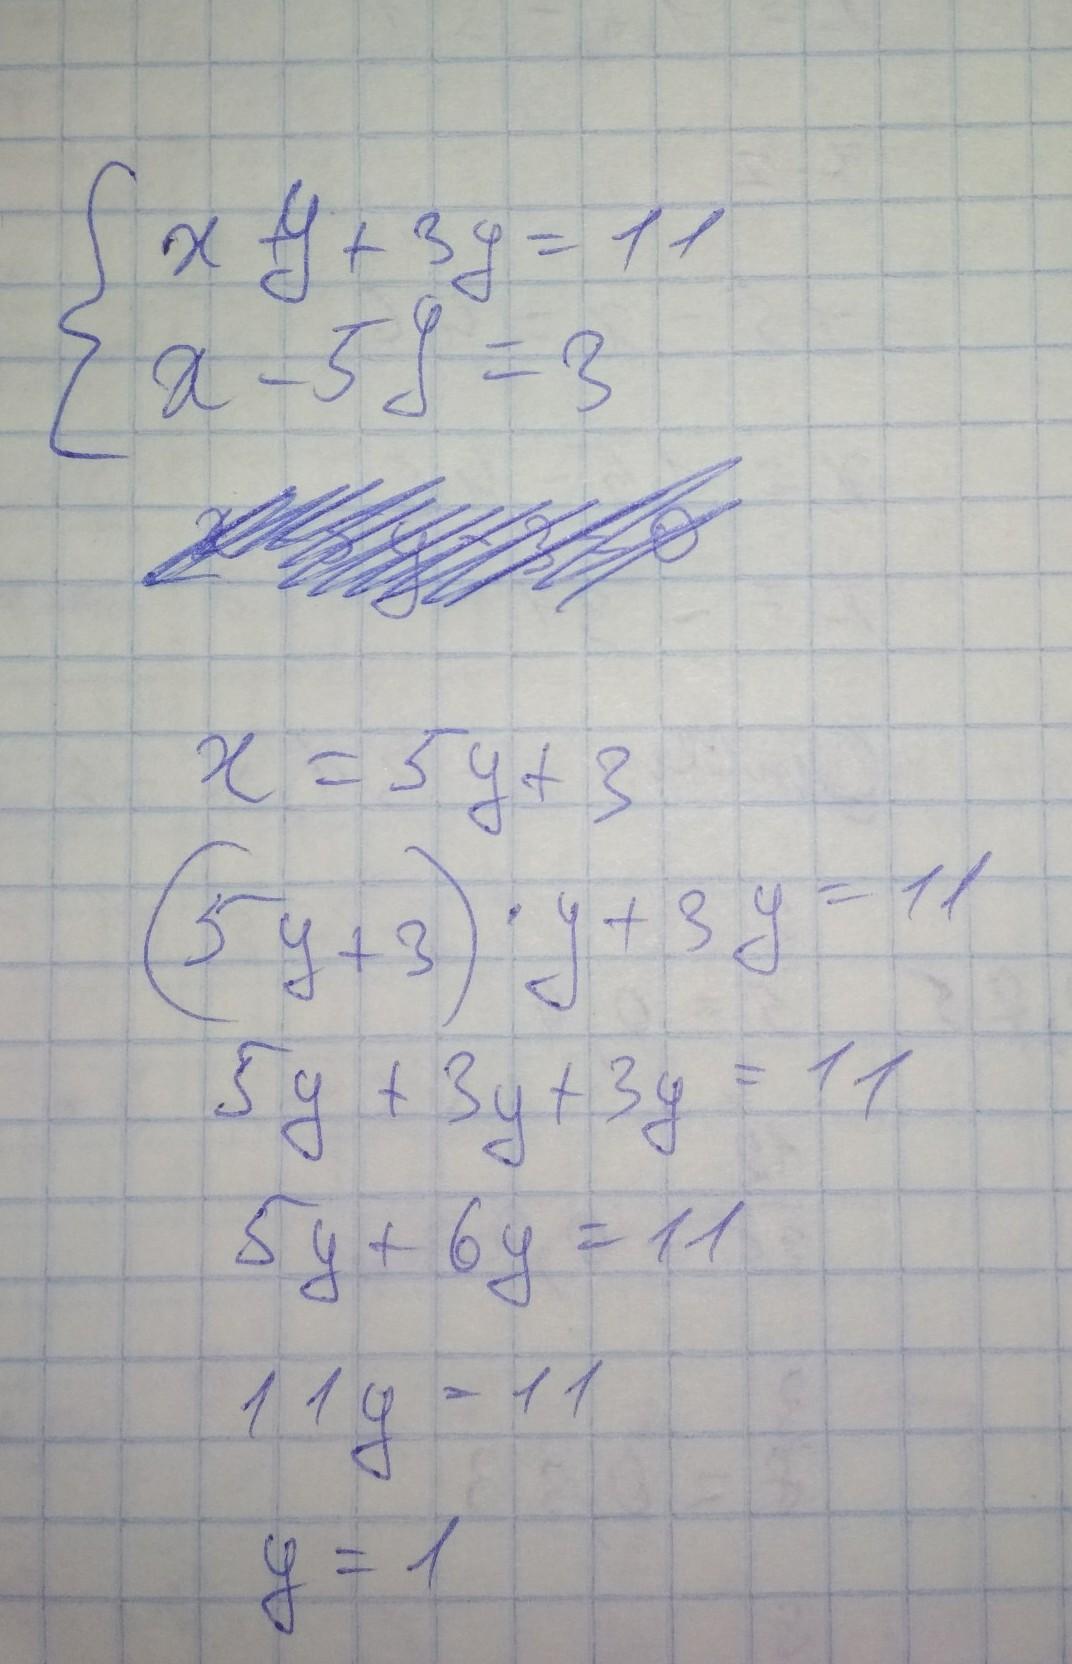 xy + 3y = 11
x - 5y = 3
x = 5y + 3
(5y + 3) · y + 3y = 11
5y + 3y + 3y = 11
5y + 6y = 11
11y = 11
y = 1